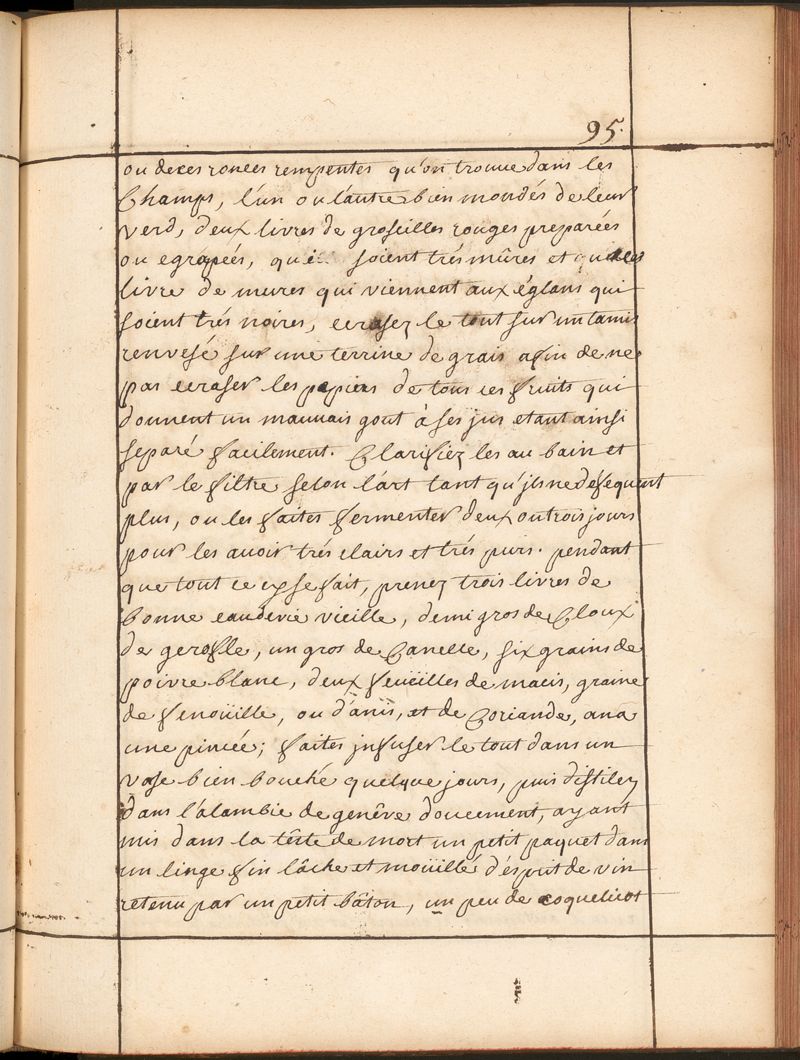 95.
ou de ces ronces rempentes qu'on trouve dans les
Champs, l'un ou l'autre bien mondés de leur
verd, deux livres de groseilles rouges preparées
ou egrapées, qui soient trés mûres et
livre de meures qui viennent aux églans qui
soient trés noires, ecrasez le tout sur un tamis
renvesé sur une terrine de grais afin de ne
pas ecraser les pepiers de tous ces fruits qui
donnent un mauvais gout à ses jus etant ainsi
separé facilement. Clarifiez les au bain et
par le filtre selon l'art tant qu'jls ne déféquent
plus, ou les faites fermenter deux ou trois jours
pour les avoir trés clairs et trés purs. pendant
que tout ce cy se fait, prenez trois livres de
bonne eaudevie vieille, demi gros de Cloux
de gerofle, un gros de Canelle, six grains de
poivre blanc, deux feüeilles de macis, graine
de fenoüille, ou d'anïs, et de Coriande, ana
une pincée; faites jnfuser le tout dans un
vase bien bouché quelque jours, puis distilez
dans l'alambic de genêve doucement, ayant
mis dans la tête de mort un petit paquet dans
un linge fin lâche et moüillé d'ésprit de vin
retenu par un petit bâton, un peu de coquelicot